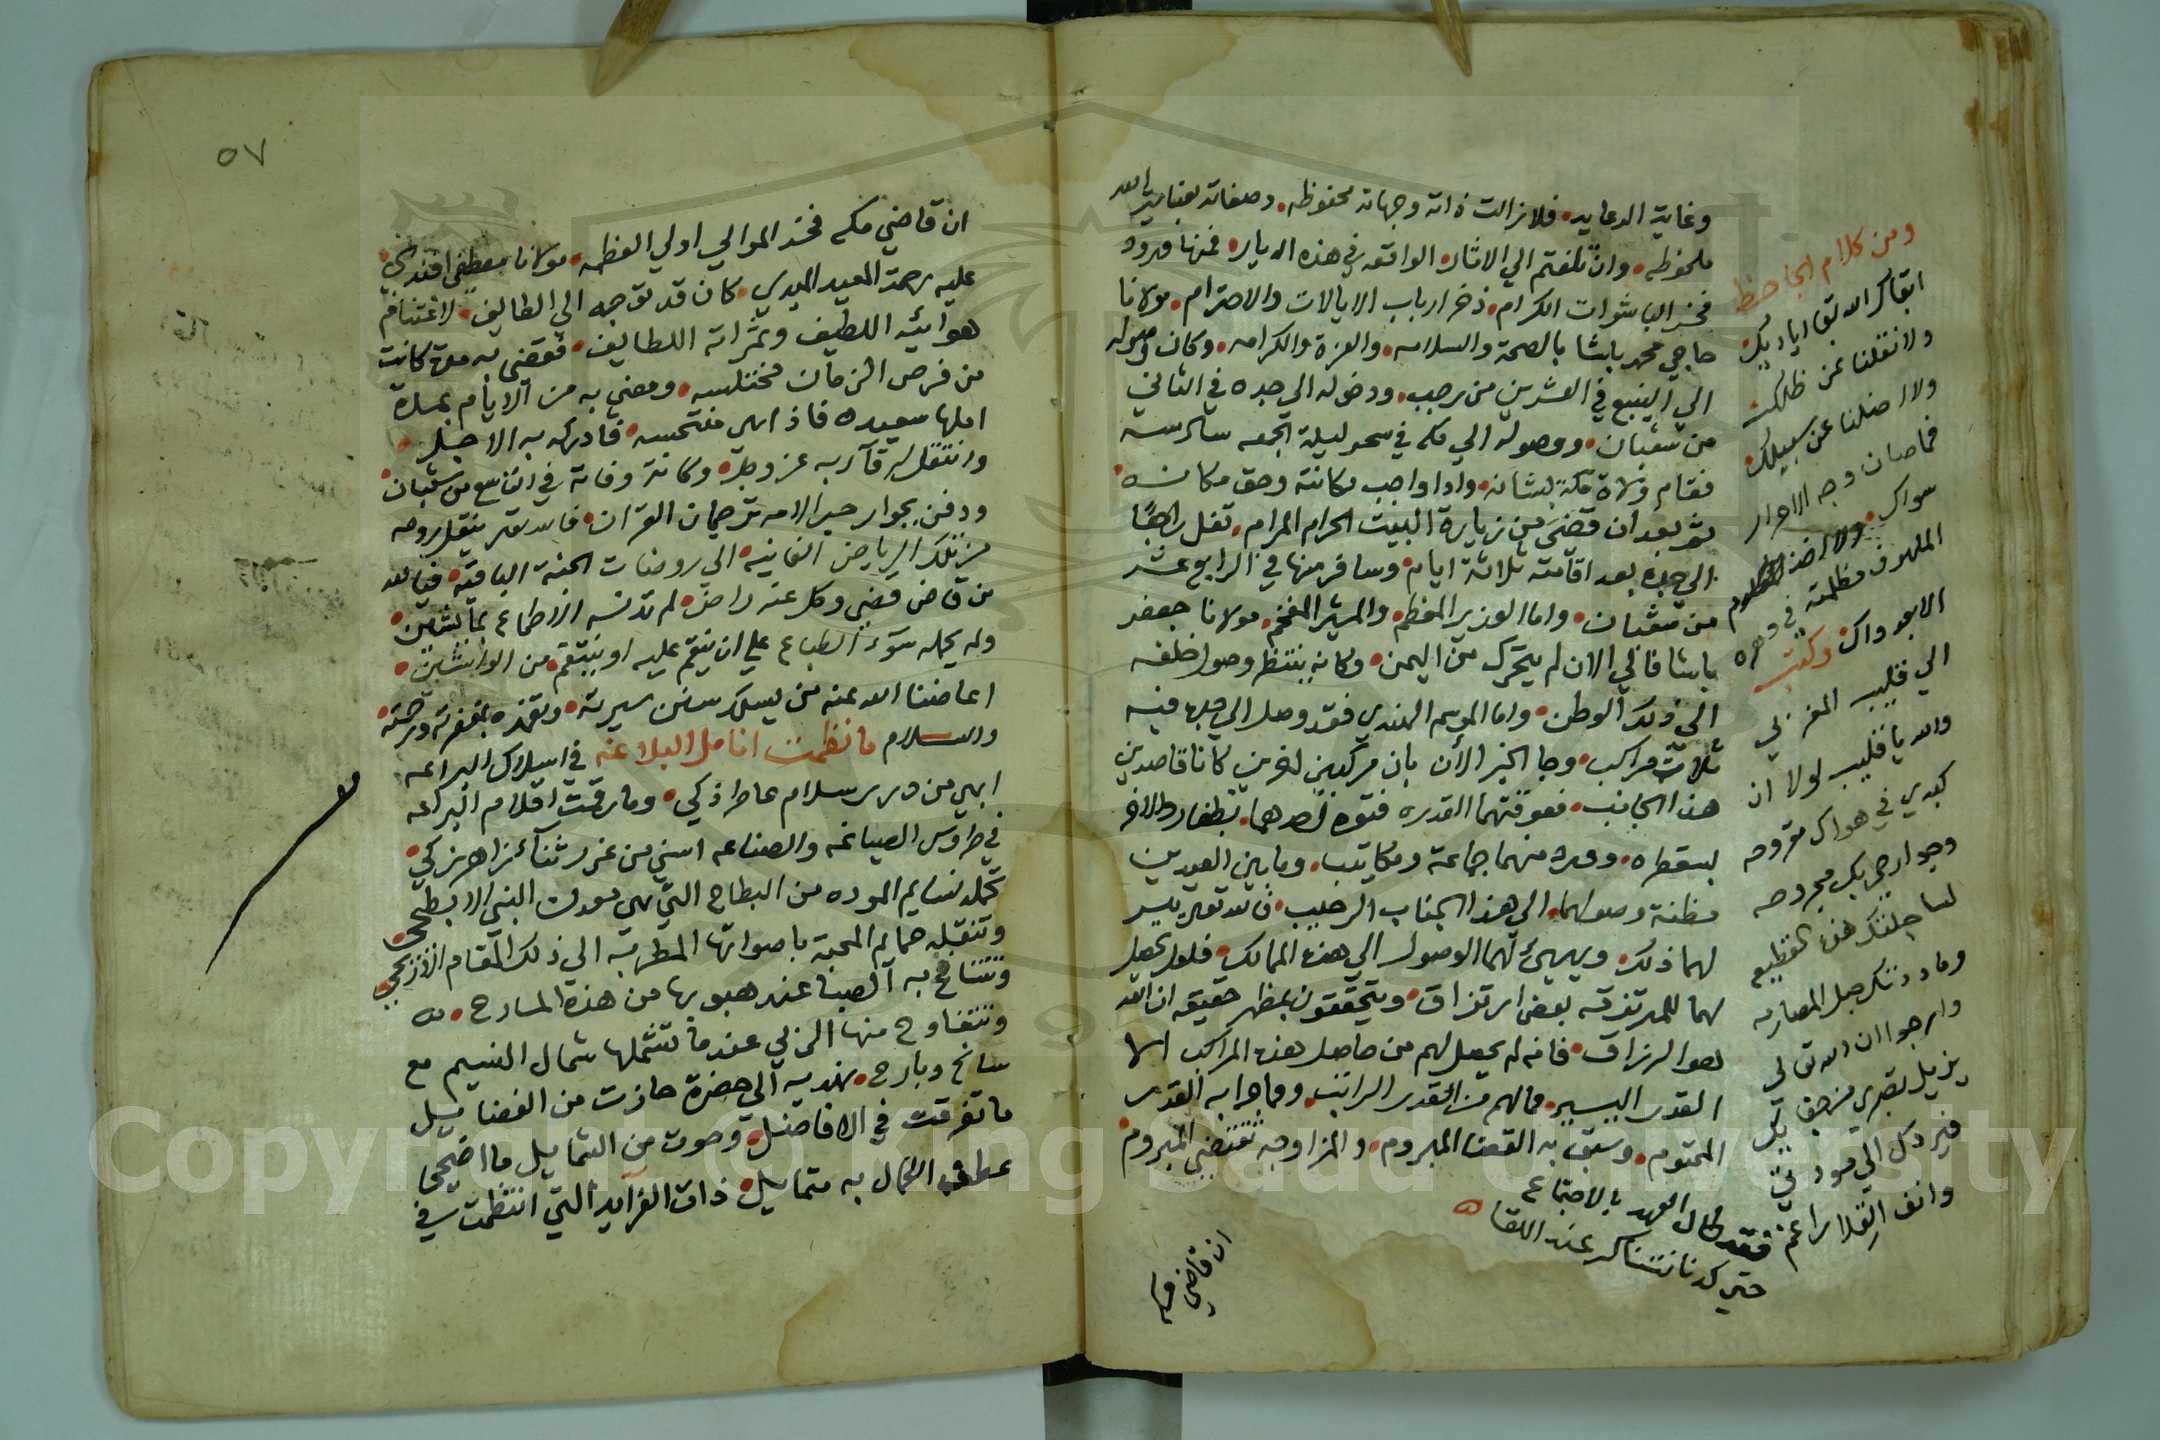 وغاية الدعايه، فلا زالت ذاته وجهاته محفوظه، وصفاته بعناية الله
ملحوظه، وان تلفتم الي الاثار، الواقعه في هذه الديار، فمنها ورود
فخر الباشوات الكرام، ذخر ارباب الايالات والاحترام، مولانا
حاجي محمد باشا بالصحة والسلامه، والعزة والكرامه، وكان وصوله
الي الينبع في العشرين من رجب، ودخوله الي جده في الثاني
من شعبان، ووصوله الي مكه في سحر ليلة الجمعه سادسه
فقام ولاة مكة بشانه، وادا واجب مكانته وحق مكانه،
ثم بعد ان قضى من زيارة البيت الحرام المرام، قفل راجعًا
الي جده بعد اقامته ثلاثة ايام، وسافر منها في الرابع عشر
من شعبان، واما الوزير المعظم، والمشير المفخم، مولانا جعفر
باشا فالي الان لم يتحرك من اليمن، وكانه ينتظر وصول خلفه
الي ذلك الوطن، واما الموسم الهندي فقد وصل الي جده فيه
ثلاث مراكب، وجا الخبر الان بان مركبين اخرين كانا قاصدين
هذا الجانب، فعوقتهما القدره فتوه احدهما، بظفار والاخر
بسقطره، وورد منهما جماعة ومكاتيب، وما بين العيدين
مظنة وصولهما، الي هذا الجناب الرحيب، فالله تعالى ييسر
لهما ذلك، ويهيئ لهما الوصول الي هذه الممالك، فلعل يحصل
بهما للمرتزقه بعض ارتزاق، ويتحققون بمظهر حقيقه ان الله
هو الرزاق، فانه لم يحصل لهم من حاصل هذه المراكب الا
القدر اليسير، فمالهم من القدر الراتب، ومما جرا به القدر
المحتوم، وسبق به القضا المبروم،
ان قاضي مكه
ومن كلام الجاحظ
ابقاك الله بقا اياديك،
ولا نقلنا عن ظلك
ولا اضلنا عن سبيلك،
فما صان وجه الاحرار
سواك،
الملهوف مظلمته في دهره
الا جدواك، وكتب
الي قليب المغربي
والله يا قليب لولا ان
كبدي في هواك مقروحه
وجوارحي بك مجروحه
لساجلتك هذه القطيعه
وماددتك حبل المصارمه
وارجوا ان الله تعالى
يزيل بصري من جفائك
فيردك الي مودتي
وانف القلا راغم فقد طال العهد بالاجتماع
حتي كدنا نتناكر عند اللقا
٥٧
ان قاضي مكه فخر الموالي اولي العظمه، مولانا مصطفى افندي،
عليه رحمة المعيد المبدي، كان قد توجه الي الطايف، لاغتنام
هوائيه اللطيف وثمراته اللطايف، فقضى به مدة كانت
من فرص الزمان مختلسه، ومضى به من الايام بمسرة
املها سعيده فاذا هي منتحسه، فادركه به الاجل،
وانتقل لقاء ربه عز وجل، وكانت وفاته في التاسع من شعبان،
ودفن بجوار حبر الامه ترجمان القران، فالله تعالى ينقل روحه
من تلك الرياض الفانيه، الي روضات الجنة الباقيه، فيالله
من قاض قضى وكل عنه راض، لم تدنسه الاطماع بما يشين،
ولم يحمله سوء الطباع علي ان ينقم عليه او ينتقم من الواشين،
اعاضنا الله عنه من يسلك سنن سيرته، وتغمده بمغفرته ورحمته،
والسلام ما نظمت انامل البلاغه في اسلاك البراعه
ابهي من درر سلام عاطر ذكي، وما رقمت اقلام البراعه
في طروس الصياغه والصناعه اسني من غرر ثنآء زاهر زكي،
تحمله نسايم الموده من البطاح التي هي معدن النبي الابطحي،
وتنقله حمايم المحبة باصواتها المطربه الي ذلك المقام الاريحي،
وتتنافح به الصبا عند هبوبها من هذة المسارح،
وتتفاوح منها الزبي عندما تشملها شمال النسيم مع
سانح وبارح، نهديه الي حضرة حازت من الفضايل
ما تفرقت في الافاضل، وحوت من الشمايل ما اضحى
عطف الكمال به متمايل، ذات الفرآيد التي انتظمت في